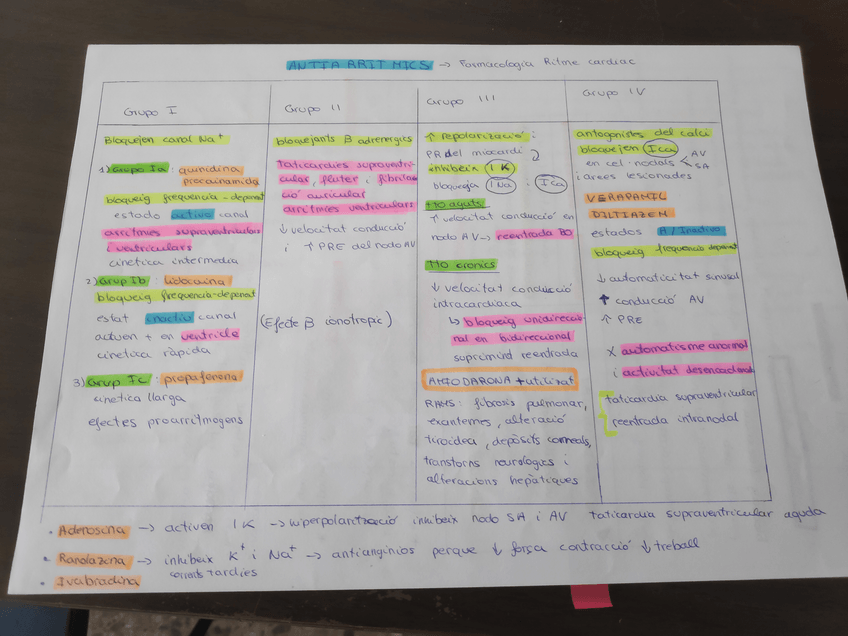 ANTIARITMICS → Farmacologia Ritme cardiac
Grupo I
Bloquejen canal Na⁺
1) Grupo Ia : quinidina
procainamida
bloqueig frequencia-depenat
estado activo canal
arritmies supraventriculars
i ventriculars
cinetica intermedia
2) Grup Ib : lidocaina
bloqueig frequencio-depenat
estat inactiu canal
actuen + en ventricle
cinetica ràpida
3) Grup Ic : propafenona
cinetica llarga
efectes proarritmogens
Grupo II
bloquejants β adrenergics
taticardies supraventri-
cular, fluter i fibrila-
ció auricular
arritmies ventriculars
↓ velocitat conducció
i ↑ PRE del nodo AV
(Efecte β ionotropic)
Grupo III
↑ repolarització :
PR del miocardi
inhibeix IK
bloqueja INa i ICa
tto aguts
↑ velocitat conducció en
nodo AV → reentrada BD
tto cronics
↓ velocitat conducció
intracardiaca
↳ bloqueig unidireccio
nal en bidireccional
suprimint reentrada
AMIODARONA + utilitzat
RAMS: fibrosis pulmonar,
exantemes, alteració
tiroidea, depòsits corneals,
transtorns neurologics i
alteracions hepàtiques
Grupo IV
antagonistes del calci
bloquejen ICa
en cel. nodals < AV
SA
i àrees lesionades
VERAPAMIL
DILTIAZEM
estados A / Inactivo
bloqueig frequencio depenat
↓ automaticitat sinusal
↑ conducció AV
↑ PRE
x automatisme anormal
i activitat desencadenada
taticardia supraventricular
reentrada intranodal
· Adenosina → activen IK → hiperpolarització inhibeix nodo SA i AV taticardia supraventricular aguda
· Ranolazina → inhibeix K⁺ i Na⁺ → antianginios perque ↓ força contracció ↓ treball
corrents tardies
· Ivabradina